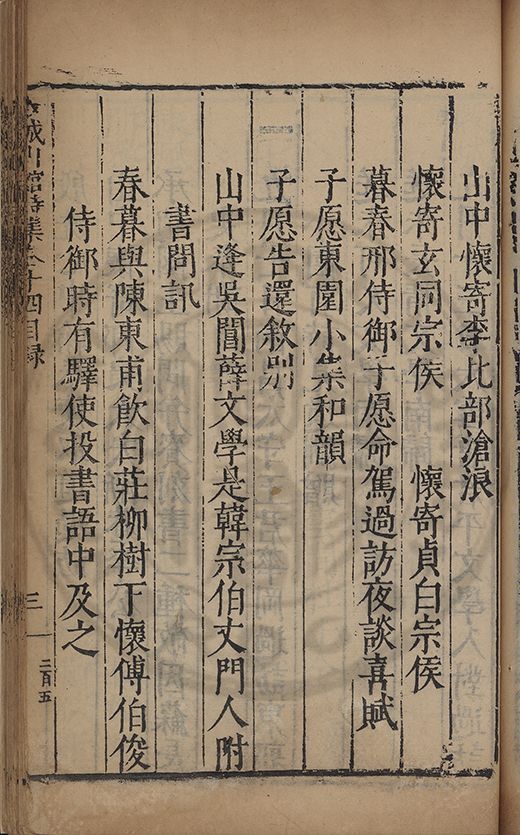 山中懷寄李比部滄浪
懷寄玄同宗侯 懷寄貞白宗侯
暮春邢侍御子愿命駕過訪夜談喜賦
子愿東園小集和韻
子愿告還敘別
山中逢吳閶薛文學是韓宗伯丈門人附
書問訊
春暮與陳東甫飲白莊柳樹下懷傅伯俊
侍御時有驛使投書語中及之
集卷十四目録
三
二百五